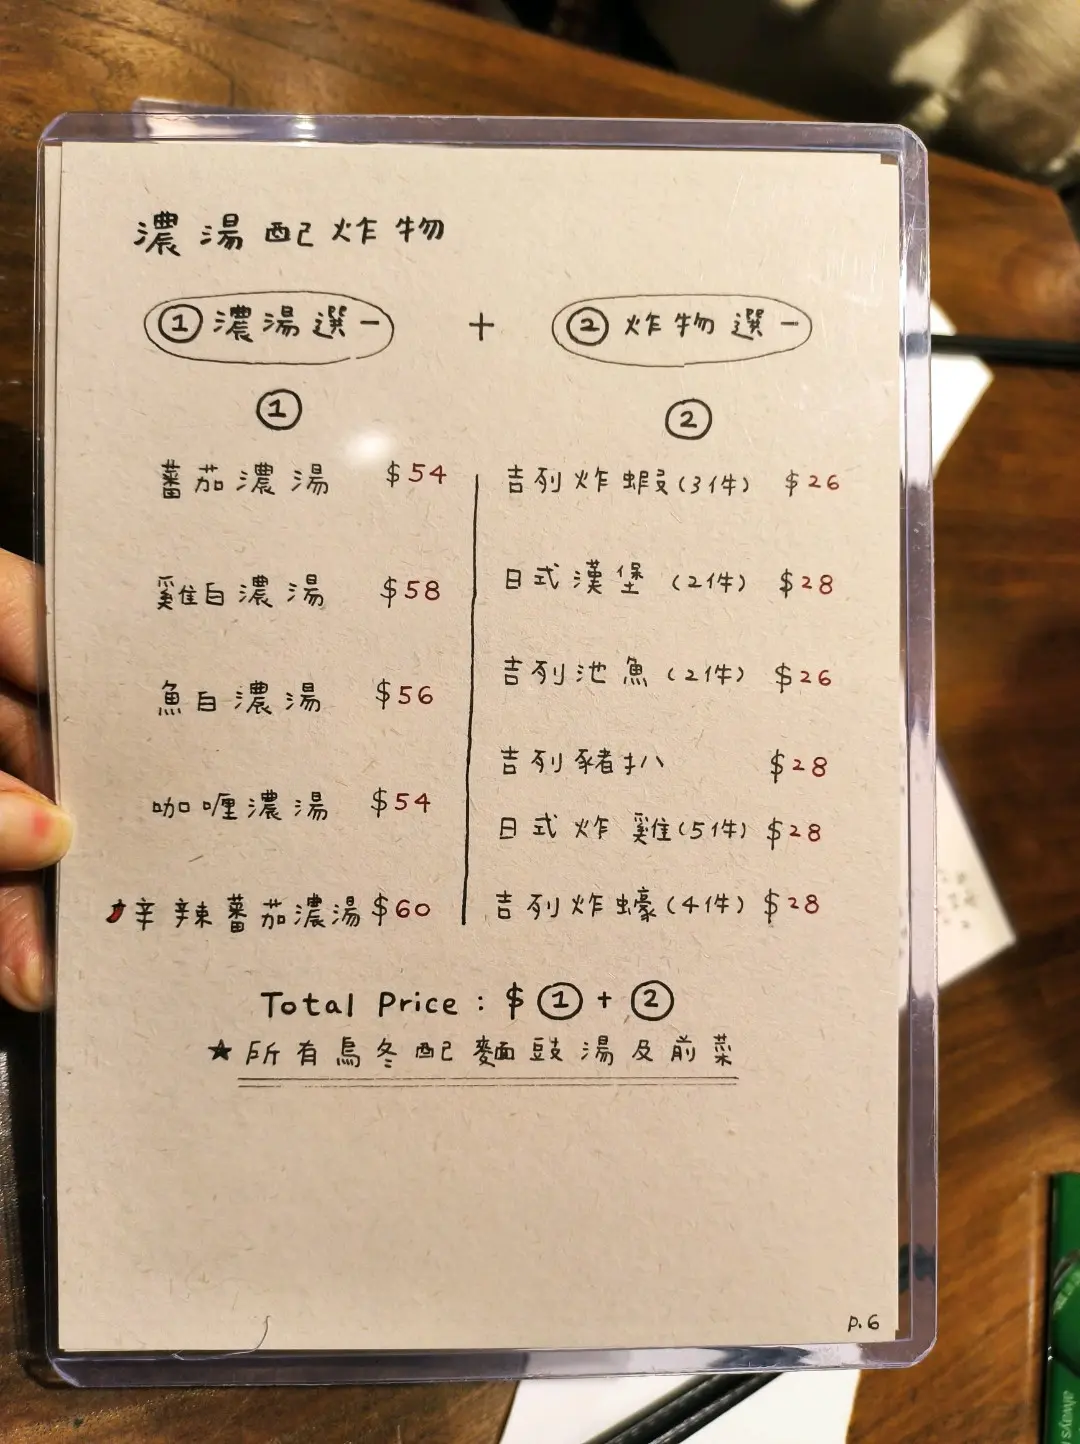 濃湯配炸物
①濃湯選一 + ②炸物選一
①
番茄濃湯 $54
雞白濃湯 $58
魚白濃湯 $56
咖喱濃湯 $54
辛辣蕃茄濃湯 $60
②
吉列炸蝦(3件) $26
日式漢堡 (2件) $28
吉列池魚 (2件) $26
吉列豬扒 $28
日式炸雞(5件) $28
吉列炸蠔(4件) $28
Total Price : $ ① + ②
★所有烏冬配麵豉湯及前菜
P.6
always